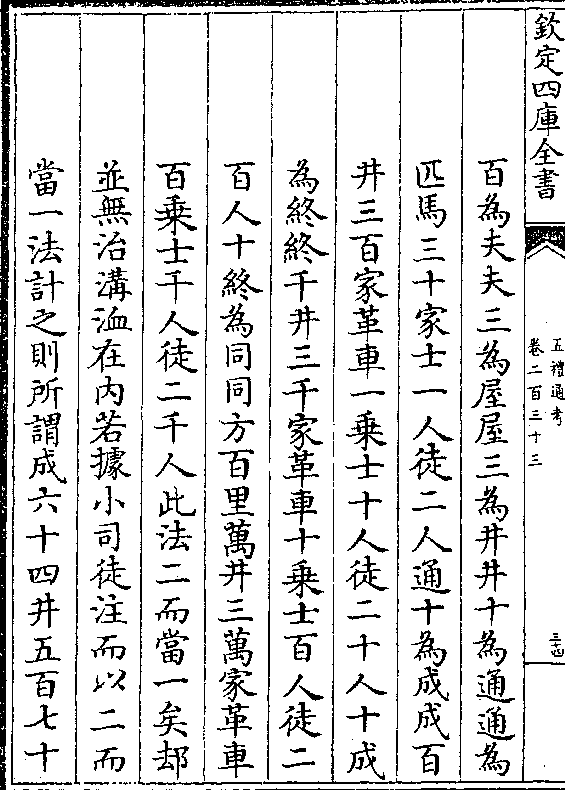 欽定四庫全書
五禮通考
卷二百三十三
三十四
百為夫夫三為屋屋三為井井十為通通為
匹馬三十家士一人徒二人通十為成成百
井三百家革車一乗士十人徒二十人十成
為終終千井三千家革車十乗士百人徒二
百人十終為同同方百里萬井三萬家革車
百乗士千人徒二千人此法二而當一矣却
並無治溝洫在内若據小司徒注而以二而
當一法計之則所謂成六十四井五百七十